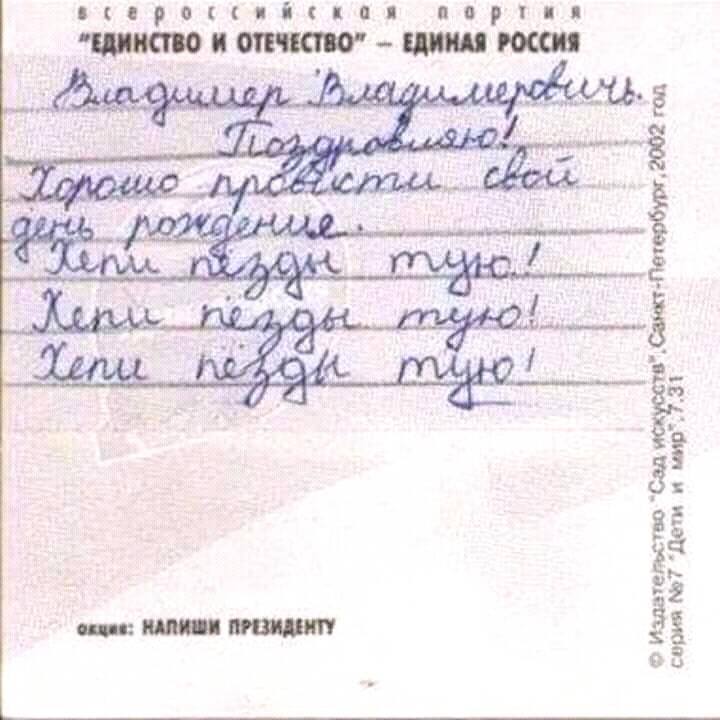 всероссийская партия
"ЕДИНСТВО И ОТЕЧЕСТВО" – ЕДИНАЯ РОССИЯ
Владимер Владимеровичь.
Поздровляю!
Хорошо провести свой
день рождение.
Хепи пёзды тую!
Хепи пёзды тую!
Хепи пёзды тую!
акция: НАПИШИ ПРЕЗИДЕНТУ
© Издательство "Сад искусств", Санкт-Петербург, 2002 год
серия №7 "Дети и мир". 7.31